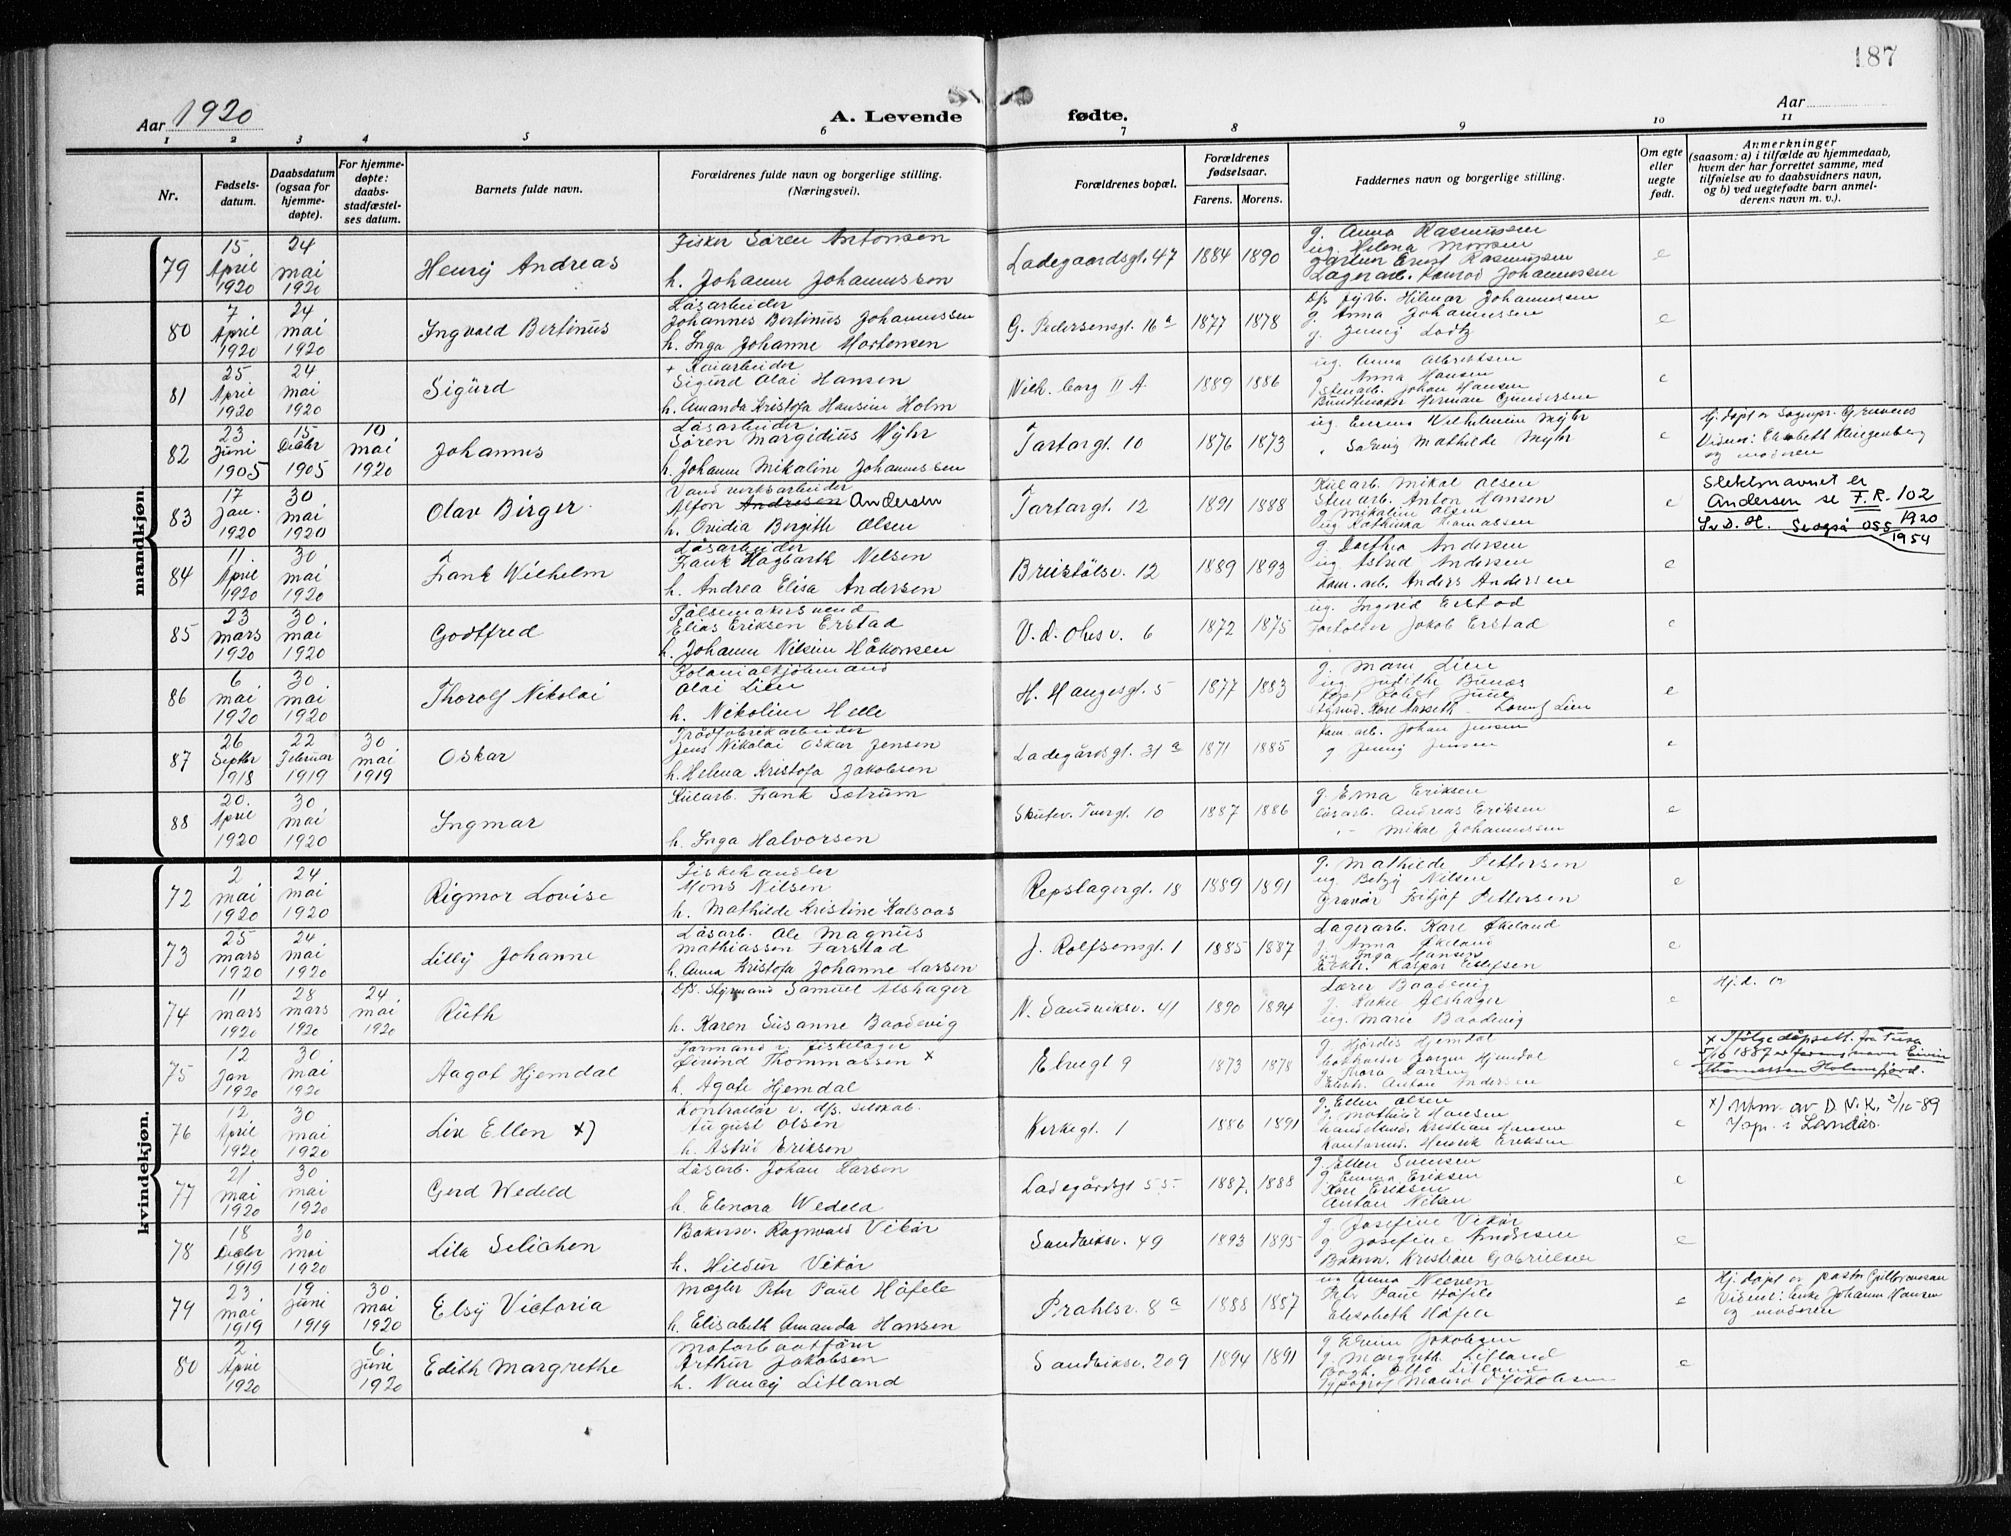 187
Aar 1920
A. Levende fødte.
Aar
1 2 3 4 5 6 7 8 9 10 11
Nr.
Fødsels-
datum.
Daabsdatum
(ogsaa for
hjemme-
døpte).
For hjemme-
døpte:
daabs-
stadfæstel-
ses datum.
Barnets fulde navn.
Forældrenes fulde navn og borgerlige stilling.
(Næringsvei).
Forældrenes bopæl.
Forældrenes
fødselsaar.
Farens. Morens.
Faddernes navn og borgerlige stilling.
Om egte
eller
uegte
født.
Anmerkninger
(saasom: a) i tilfælde av hjemmedaab,
hvem der har forrettet samme, med
tilføielse av to daabsvidners navn,
og b) ved uegtefødte barn anmel-
derens navn m. v.).
mandkjøn.
79
15 April 1920
24 mai 1920
Henry Andreas
Fisker Sören Antonsen
h. Johanne Johannesson
Ladegaardsgt. 47
1884 1890
g. Anna Rasmussen
ug. Helena Monsen
Ernst Rasmussen
Lagerarb. Konrad Johannessen
e
80
7 April 1920
24 mai 1920
Ingvald Bertinus
Løsarbeider
Johannes Bertinus Johannessen
h. Inga Johanne Mortensen
G. Pedersensgt. 16a
1877 1878
D/s fyrb. Hilmar Johannessen
g. Anna Johannessen
g. Jenny Lortz
e
81
25 April 1920
24 mai 1920
Sigurd
+ Kaiarbeider
Sigurd Olai Hansen
h. Amanda Kristofa Hansine Holm
Vilh. borg II A.
1889 1886
ug. Anna Albrektsen
g. Anna Hansen
Stenarb. Johan Hansen
Buntmaker Herman Gundersen
e
82
23 Juni 1905
15 Decbr 1905
10 mai 1920
Johannes
Løsarbeider
Sören Margidius Myhr
h. Johanne Mikaline Johannessen
Tartargt. 10
1876 1873
ug. Emma Wilhelmine Myhr
" Solveig Mathilde Myhr
e
Hj. døpt av Sognepr. Gruveres
Vidner: Elisabeth Klingenberg
og moderen
83
17 Jan. 1920
30 mai 1920
Olav Birger
Vandverksarbeider
Alfon Andresen Andersen
h. Ovidia Bergith Olsen
Tartargt. 12
1891 1888
Kularb. Mikal Olsen
Stenarb. Anton Hansen
g. Mikaline Olsen
ug. Kathinka Tomassen
e
Slektnavnet er
Andersen se F.R. 102
1920
S.v.D.H. Se også 055
1954
84
11 April 1920
30 mai 1920
Frank Wilhelm
Løsarbeider
Frank Hagbarth Nilsen
h. Andrea Elisa Andersen
Breistølsv. 12
1889 1893
g. Dorthea Andersen
ug. Astrid Andersen
Kom. arb. Anders Andersen
e
85
23 mars 1920
30 mai 1920
Godtfred
Pølsemakersvend
Elias Eriksen Erstad
h. Johanne Nilsine Håkonsen
V. d. Ohesv. 6
1872 1875
ug. Ingerid Erstad
Forholder Jakob Erstad
e
86
6 mai 1920
30 mai 1920
Thorolf Nikolai
Kolonialkjøbmand
Olai Lien
h. Nikoline Helle
H. Haugesgt. 5
1877 1883
g. Marie Lien
ug. Judithe Bunæs
e
87
26 Septbr 1918
22 Februar 1919
30 mai 1919
Oskar
Trådfabrikarbeider
Jens Nikolai Oskar Jensen
h. Helena Kristofa Jakobsen
Ladegårdsgt. 31a
1871 1885
Kom. arb. Johan Jensen
g. Jenny Jensen
e
88
20. April 1920
30 mai 1920
Ingmar
Kularb. Frank Sætrum
h. Inga Halvorsen
Skutev. Turvgt. 10
1887 1886
g. Erna Eriksen
Løsarb. Andreas Eriksen
" Mikal Johannessen
e
kvindekjøn.
72
2 mai 1920
24 mai 1920
Rigmor Lovise
Fiskehandler
Mons Nilsen
h. Mathilde Kristine Kalsaas
Repslagergt. 18
1889 1891
g. Mathilde Pettersen
ug. Betzy Nilsen
Gravør Fritjof Pettersen
e
73
25 mars 1920
24 mai 1920
Lilly Johanne
Løsarb. Ole Magnus
Mathiassen Farstad
h. Anna Kristofa Johanne Larsen
J. Rolfsensgt. 1
1885 1887
Lagerarb. Kare Økeland
g. Anna Økeland
ug. Inga Hansen
Elektr. Kaspar Ellefsen
e
74
11 mars 1920
28 mars 1920
24 mai 1920
Ruth
D/s. Styrmand Samuel Alshager
h. Karen Susanne Baadevig
N. Sandviksv. 41
1890 1894
Lærer Baadevig
g. Alshager
ug. Marie Baadevig
e
Hj. d. av
75
12 Jan 1920
30 mai 1920
Aagot Hjemdal
Formand v. fiskelager
Øivind Thommassen x
h. Agate Hjemdal
Elvegt 9
1873 1878
g. Hjørdis Hjemdal
Jørgen Hjemdal
g. Thora Larsen
Elektr. Anton Andersen
e
x Ifølge dåpsatt. fra Fusa
5/16 1887 er farens navn Eivin
Thomassen Holmefjord.
76
12 April 1920
30 mai 1920
Liv Ellen x)
Kontrollør v. d/s. selskab.
August Olsen
h. Astrid Eriksen
Kirkegt. 1
1886 1891
g. Ellen Olsen
g. Mathilde Hansen
Handelsm. Kristian Hansen
Kontormd. Henrik Eriksen
e
x) Utm. av D. N. K. 2/10-89
v/sp. i Landås.
77
21 mai 1920
30 mai 1920
Gerd Wedeld
Løsarb. Johan Larsen
h. Elenora Wedeld
Ladegårdsgt 55
1887. 1888
g. Ellen Svensen
g. Emma Eriksen
Karl Eriksen
Anton Nilsen
e
78
18 Decbr 1919
30 mai 1920
Lila Selichen
Bakersv. Ragnvald Vikør
h. Hildur Vikør
Sandviksv. 49
1893 1895
g. Josefine Vikør
g. Josefine Andresen
Bakersv. Kristian Gabrielsen
e
79
23 mai 1919
19 Juni 1919
30 mai 1920
Elsy Victoria
Mægler Peter Paul Høfele
h. Elisabeth Amanda Hansen
Prahlsv. 8a
1888 1887
ug. Anna Neeven
Peter Paul Höfele
Elisabeth Höfele
e
Hj. døpt av pastor Gulbransan
Vidner: Enke Johanne Hansen
og moderen
80
2 April 1920
6 Juni 1920
Edith Margrethe
Motorbaatfører
Arthur Jakobsen
h. Nancy Litland
Sandviksv. 209
1894 1891
g. Jakobsen
g. Margreth. Litland
Bagm. Otto Litland
Typograf Jakobsen
e